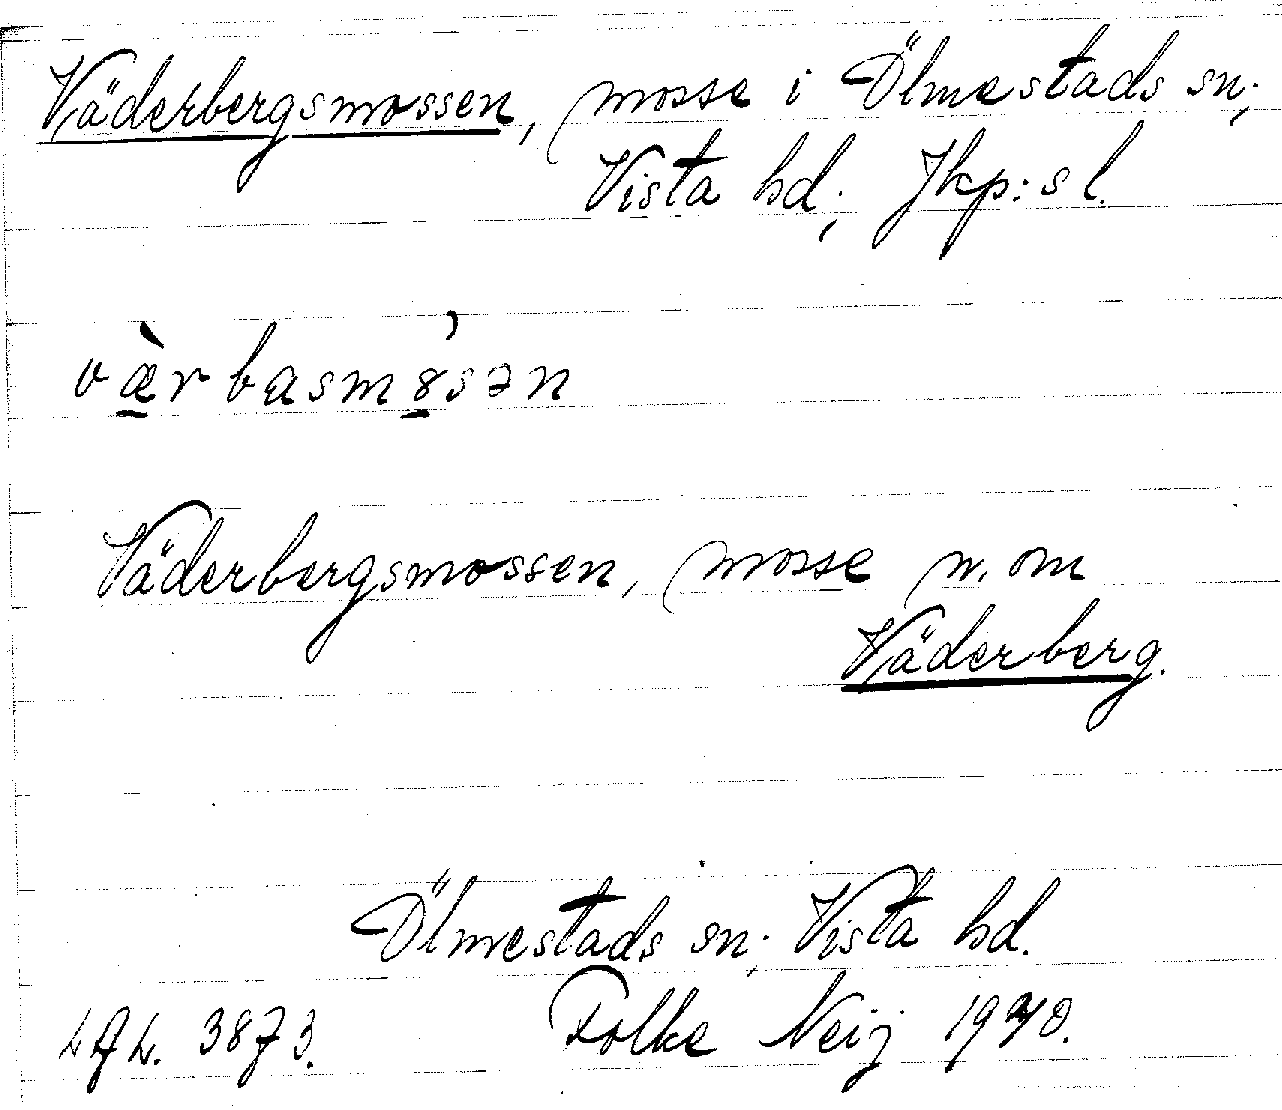 Väderbergsmossen, mosse i Ölmestads sn;
Vista hd; Jkp:s l.
væ̀rbasmȣ́sən
Väderbergsmossen, mosse n. om
Väderberg.
Ölmestads sn; Vista hd.
Folke Neij 1940.
3873.